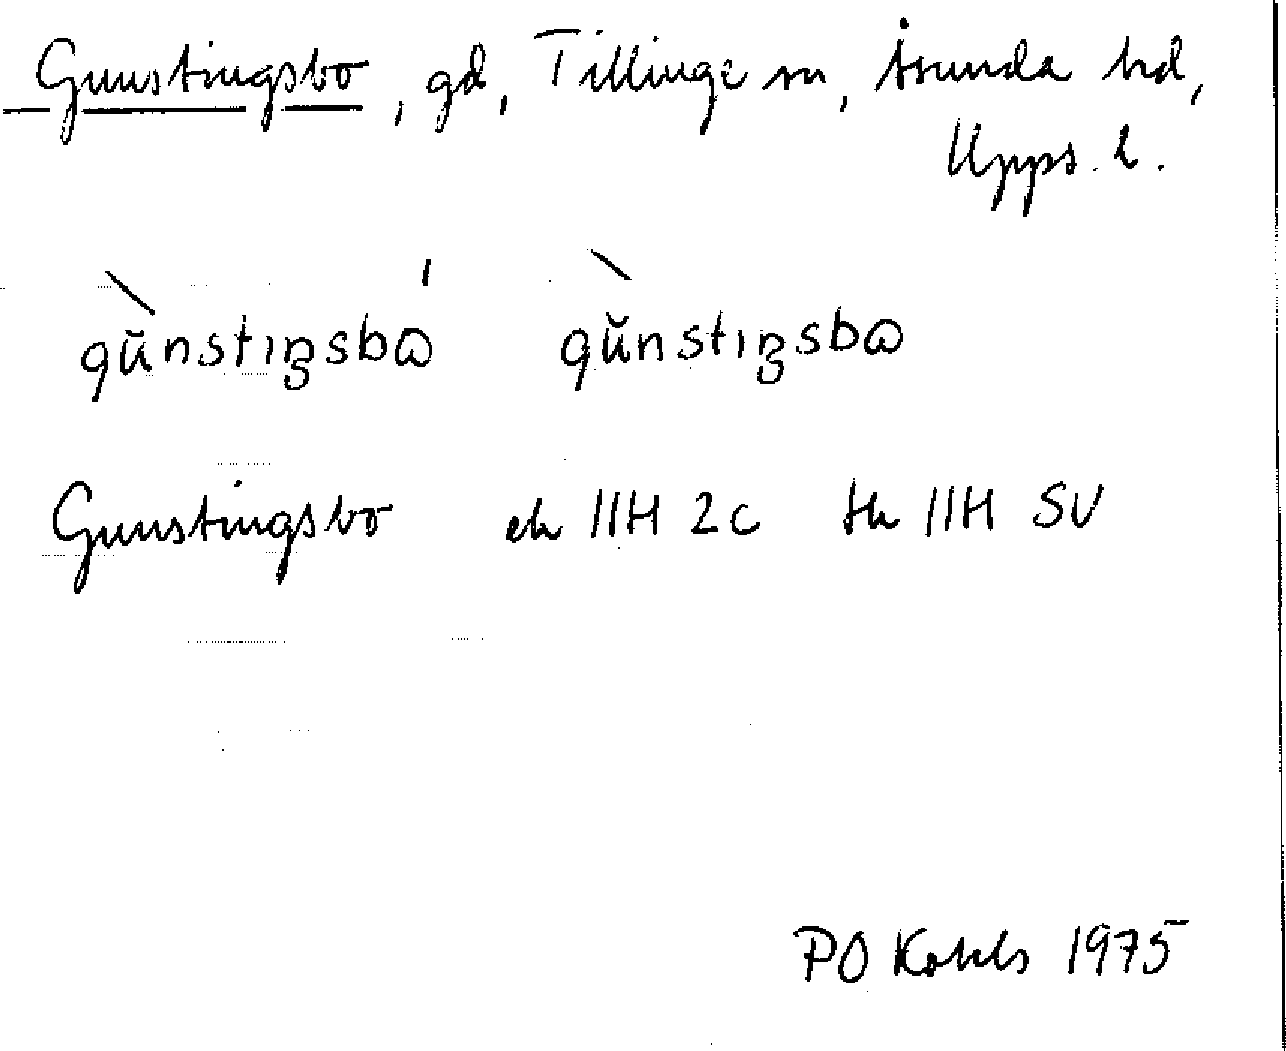 Gunstingsbo, gd, Tillinge sn, Åsunda hd,
Upps. l.
gŭ̀nstıŋsbώ gŭ̀nstıŋsbω
Gunstingsbo ek 11H 2c tk 11H SV
PO Kohls 1975